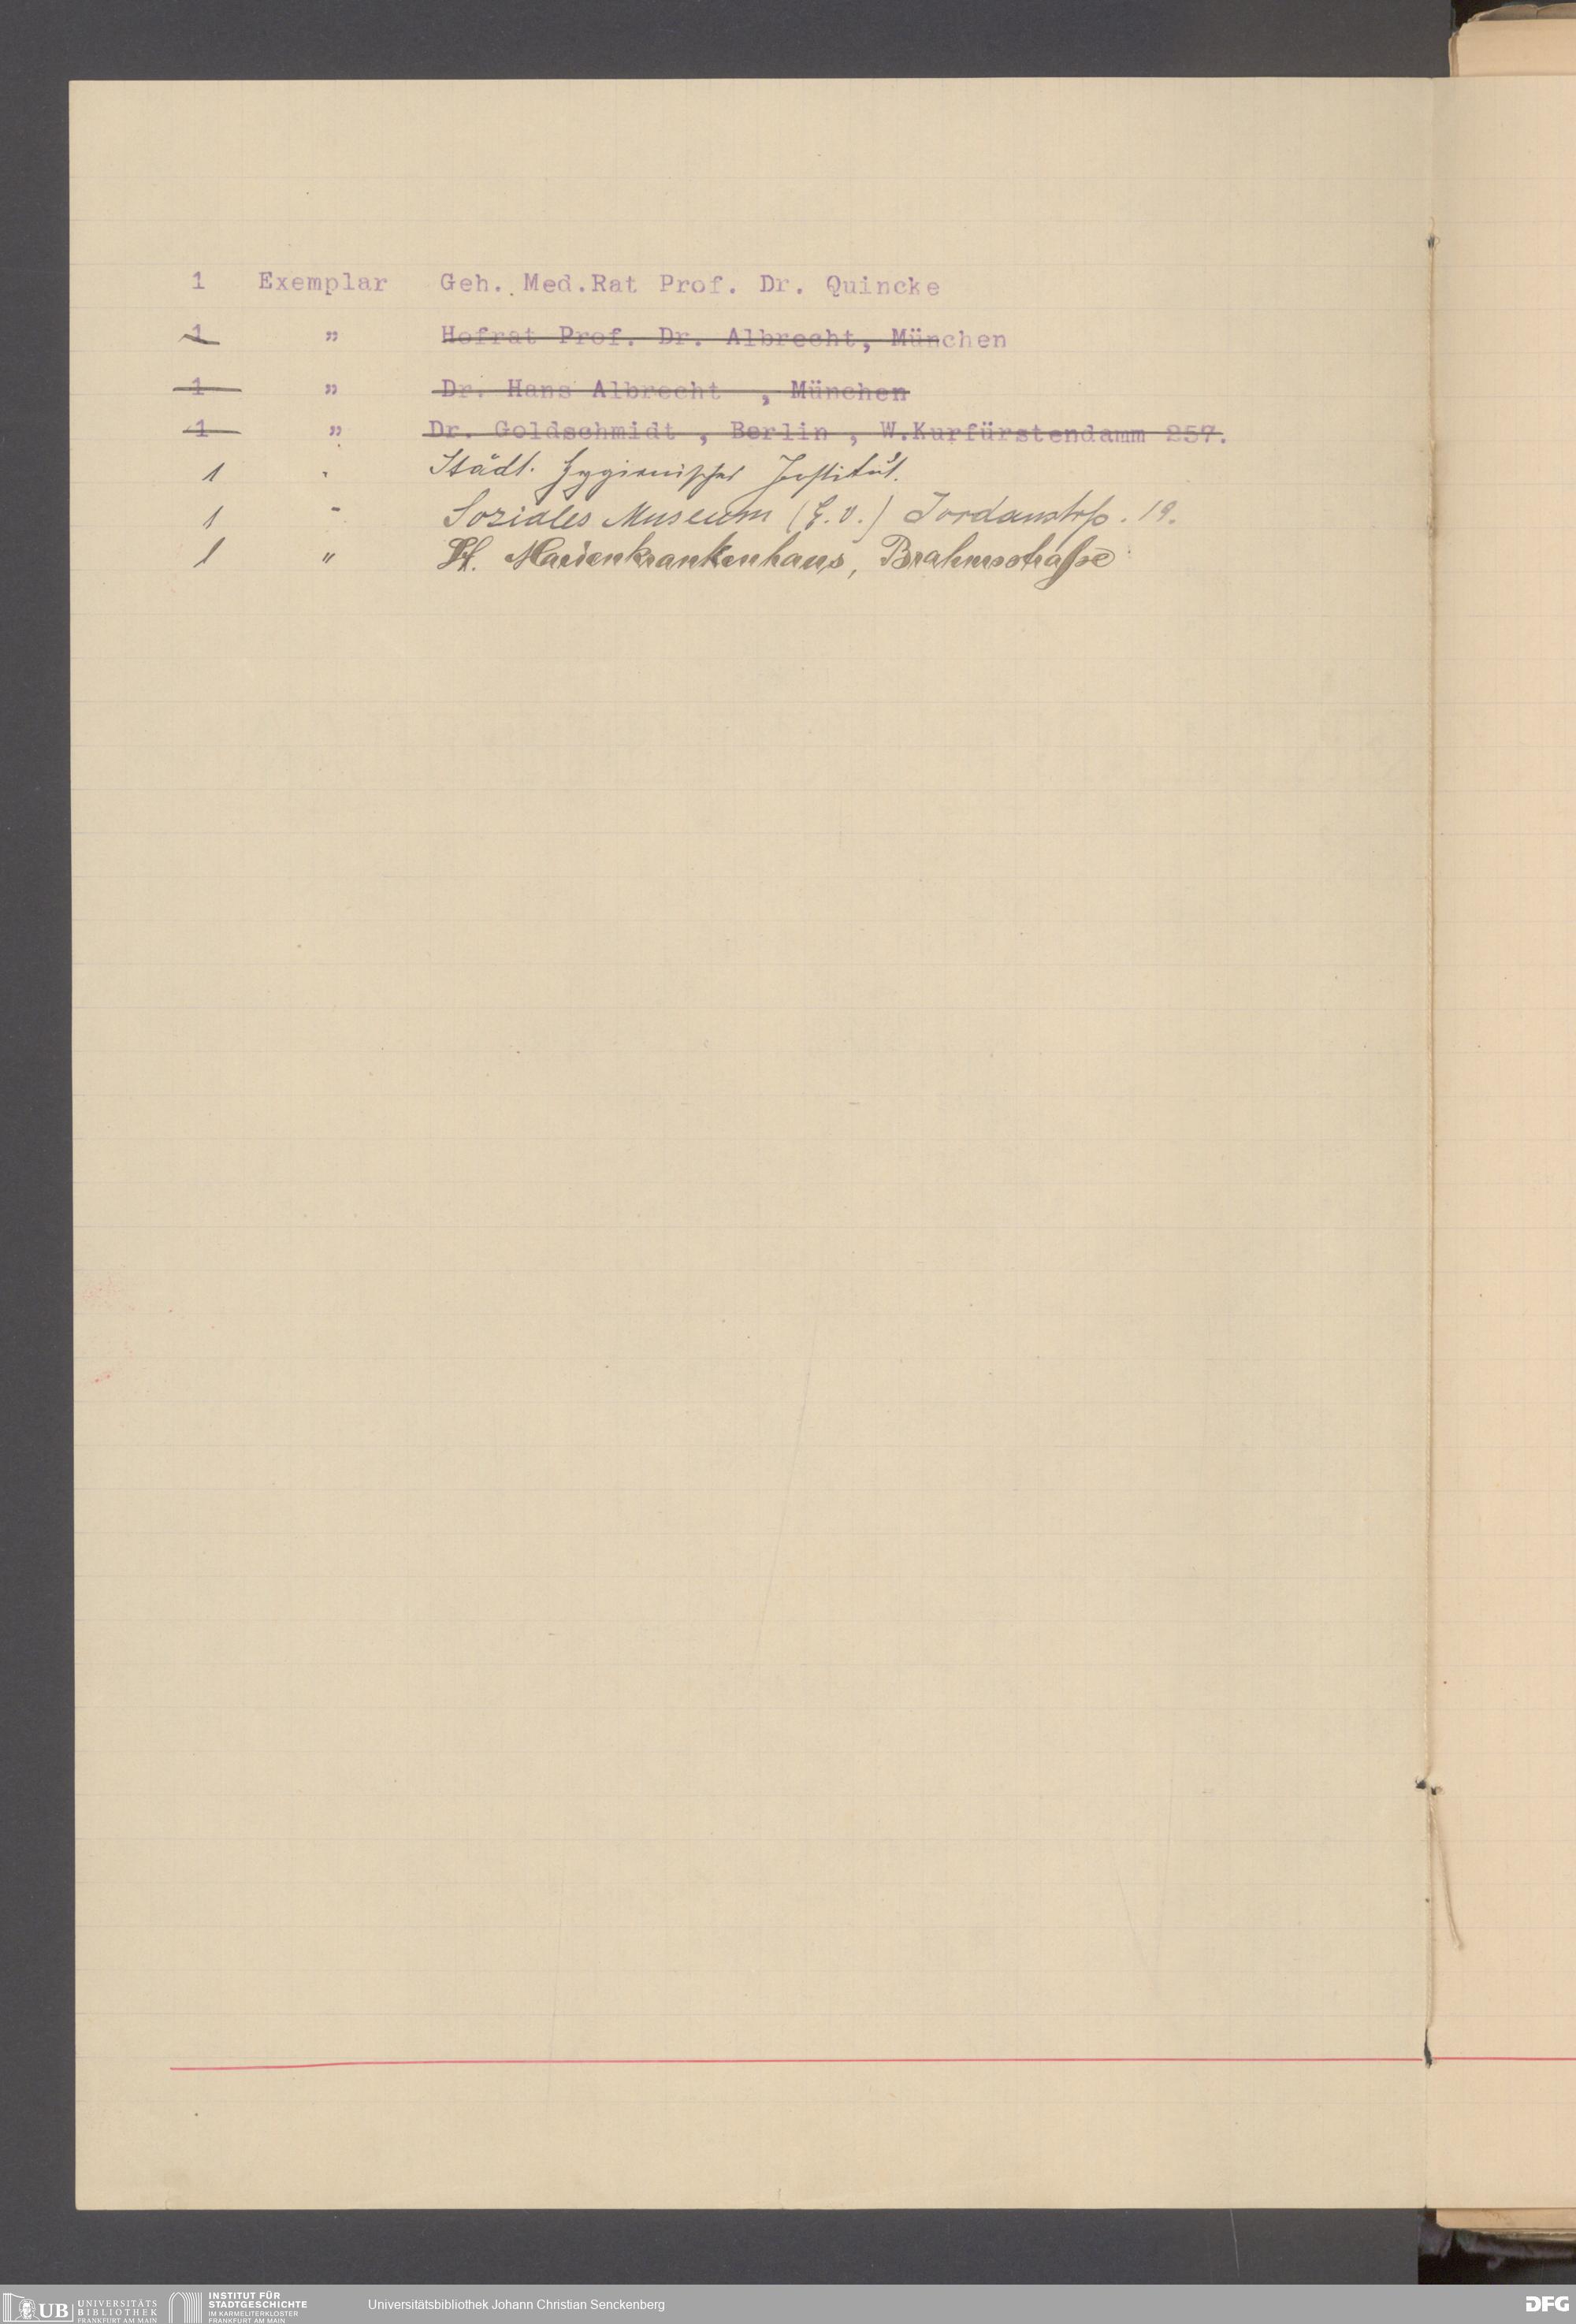 1 Exemplar Geh. Med.Rat Prof. Dr. Quincke
1 " Hofrat Prof. Dr. Albrecht, München
1 " Dr. Hans Albrecht , München
1 " Dr. Goldschmidt , Berlin , W.Kurfürstendamm 257.
1 " Städt. Hygienisches Institut.
1 " Soziales Museum (E.V.) Jordanstrß. 19.
1 " St. Marienkrankenhaus, Brahmsstraße
UB UNIVERSITÄTS BIBLIOTHEK FRANKFURT AM MAIN
INSTITUT FÜR STADTGESCHICHTE IM KARMELITERKLOSTER FRANKFURT AM MAIN
Universitätsbibliothek Johann Christian Senckenberg
DFG